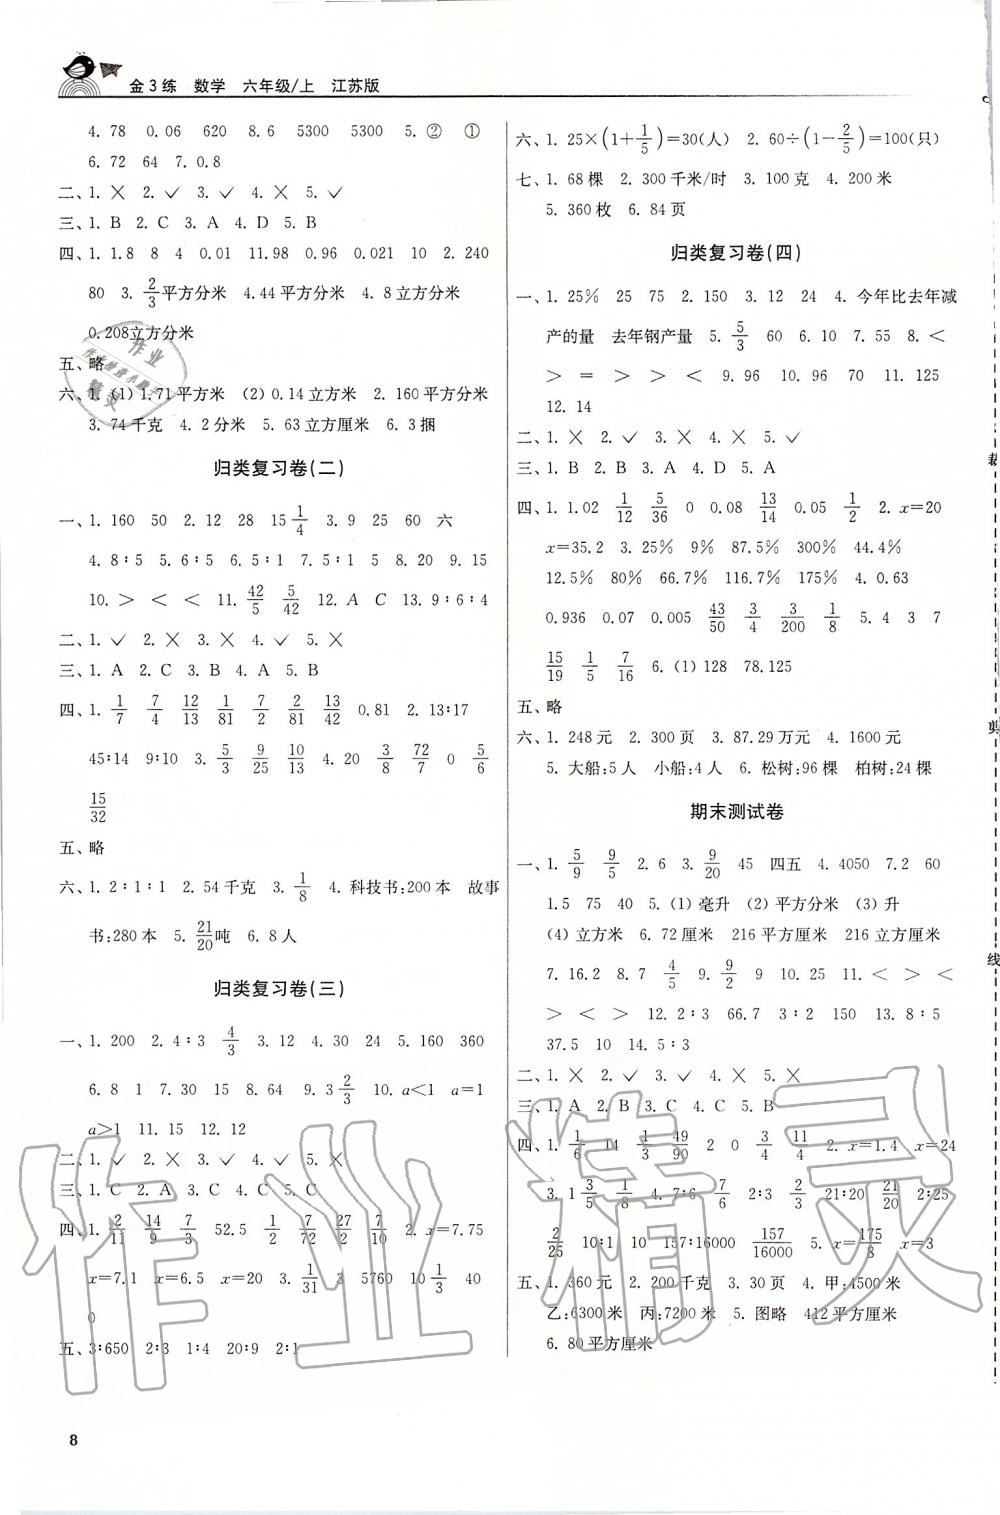 金3练 数学 六年级/上 江苏版
4. 78 0.06 620 8.6 5300 5300 5. ② ①
6. 72 64 7. 0.8
二、1. ✕ 2. ✓ 3. ✓ 4. ✕ 5. ✓
三、1. B 2. C 3. A 4. D 5. B
四、1. 1.8 8 4 0.01 11.98 0.96 0.021 10 2. 240
80 3. 2/3平方分米 4.44平方分米 4. 8立方分米
0.208立方分米
五、略
六、1. (1) 1.71平方米 (2) 0.14立方米 2. 160平方分米
3. 74千克 4. 2分米 5. 63立方厘米 6. 3捆
归类复习卷(二)
一、1. 160 50 2. 12 28 15 1/4 3. 9 25 60 六
4. 8∶5 5. 6∶5 6. 5∶1 7. 5∶1 5 8. 20 9. 15
10. > < < 11. 42/5 5/42 12. A C 13. 9∶6∶4
二、1. ✓ 2. ✕ 3. ✕ 4. ✓ 5. ✕
三、1. A 2. C 3. B 4. A 5. B
四、1. 1/7 7/4 12/13 1/81 7/2 2/81 13/42 0.81 2. 13∶17
45∶14 9∶10 3. 5/3 9/25 10/13 4. 3/8 72/7 0 5/6
15/32
五、略
六、1. 2∶1∶1 2. 54千克 3. 1/8 4. 科技书:200本 故事
书:280本 5. 21/20吨 6. 8人
归类复习卷(三)
一、1. 200 2. 4∶3 4/3 3. 12 4. 30 24 5. 160 360
6. 8 1 7. 30 15 8. 64 9. 3 2/3 10. a<1 a=1
a>1 11. 15 12. 12
二、1. ✓ 2. ✕ 3. ✓ 4. ✓ 5. ✕
三、1. C 2. A 3. C 4. C 5. C
四、1. 2/11 14/9 7/3 52.5 1/2 7/72 27/2 7/10 2. x=7.75
x=7.1 x=6.5 x=20 3. 1/31 3 5760 10 1/3 40
0
五、3∶650 2∶3 1∶4 20∶9 2∶1
六、1. 25×(1+1/5)=30(人) 2. 60÷(1-2/5)=100(只)
七、1. 68棵 2. 300千米/时 3. 100克 4. 200米
5. 360枚 6. 84页
归类复习卷(四)
一、1. 25% 25 75 2. 150 3. 12 24 4. 今年比去年减
产的量 去年钢产量 5. 5/3 60 6. 10 7. 55 8. <
> = > > < 9. 96 10. 96 70 11. 125
12. 14
二、1. ✕ 2. ✓ 3. ✕ 4. ✕ 5. ✓
三、1. B 2. B 3. A 4. D 5. A
四、1. 1.02 1/12 5/36 0 0.08 13/14 0.05 1/2 2. x=20
x=35.2 3. 25% 9% 87.5% 300% 44.4%
12.5% 80% 66.7% 116.7% 175% 4. 0.63
0.936 0.07 0.005 43/50 3/4 3/200 1/8 5. 4 3 7
15/19 1/5 7/16 6. (1) 128 78.125
五、略
六、1. 248元 2. 300页 3. 87.29万元 4. 1600元
5. 大船:5人 小船:4人 6. 松树:96棵 柏树:24棵
期末测试卷
一、1. 5/9 9/5 2. 6 3. 9/20 45 四五 4. 4050 7.2 60
1.5 75 40 5. (1) 毫升 (2) 平方分米 (3) 升
(4) 立方米 6. 72厘米 216平方厘米 216立方厘米
7. 16.2 8. 7 4/5 9. 9/2 9 10. 25 11. < > <
> < > 12. 2∶3 66.7 3∶2 150 13. 8∶5
37.5 10 14. 5∶3
二、1. ✕ 2. ✓ 3. ✓ 4. ✕ 5. ✕
三、1. A 2. B 3. C 4. C 5. B
四、1. 1/6 14 1/3 49/90 2 0 3/4 11/4 2. x=1.4 x=24
3. 1 3/5 1/8 4. 7∶6 7/6 2∶3 2/3 21∶20 21/20 2∶25
2/25 10∶1 10 157∶16000 157/16000 5. x=175/8 x=3
五、1. 360元 2. 200千克 3. 30页 4. 甲:4500米
乙:6300米 丙:7200米 5. 图略 412平方厘米
6. 80平方厘米
裁
剪
线
8
作业精灵